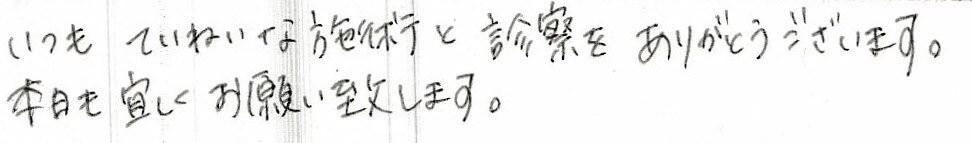 いつも ていねいな施術と診察を ありがとうございます。
本日も宜しくお願い致します。